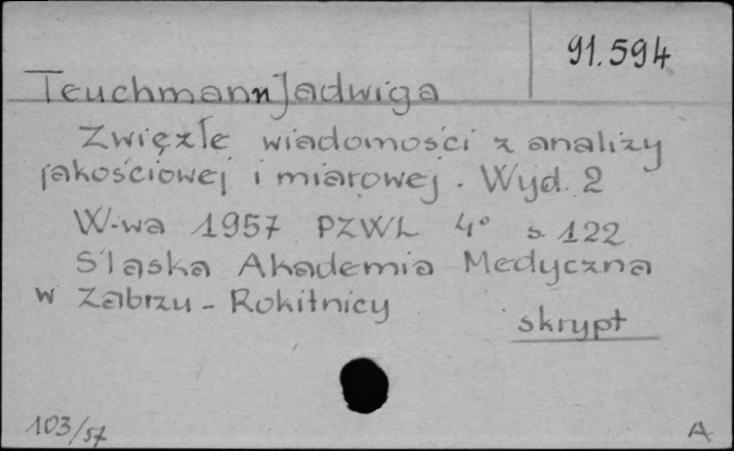 91.594
Teuchmann Jadwiga
Zwięzłe wiadomości z analizy
jakościowej i miarowej. Wyd. 2
W-wa 1957 PZWL 4° s. 122
Śląska Akademia Medyczna
w Zabrzu - Rokitnicy
skrypt
103/57
A